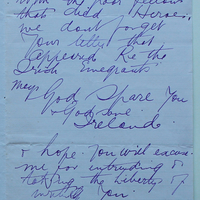 with the poor fellows
that died Heroes,
we dont forget
Your letter that
appeared Re the
Irish Emegrants
Mays God Spare You
& God Save
Ireland.
& hope you will excuse
me for intruding &
taking the Liberty of
writing You.